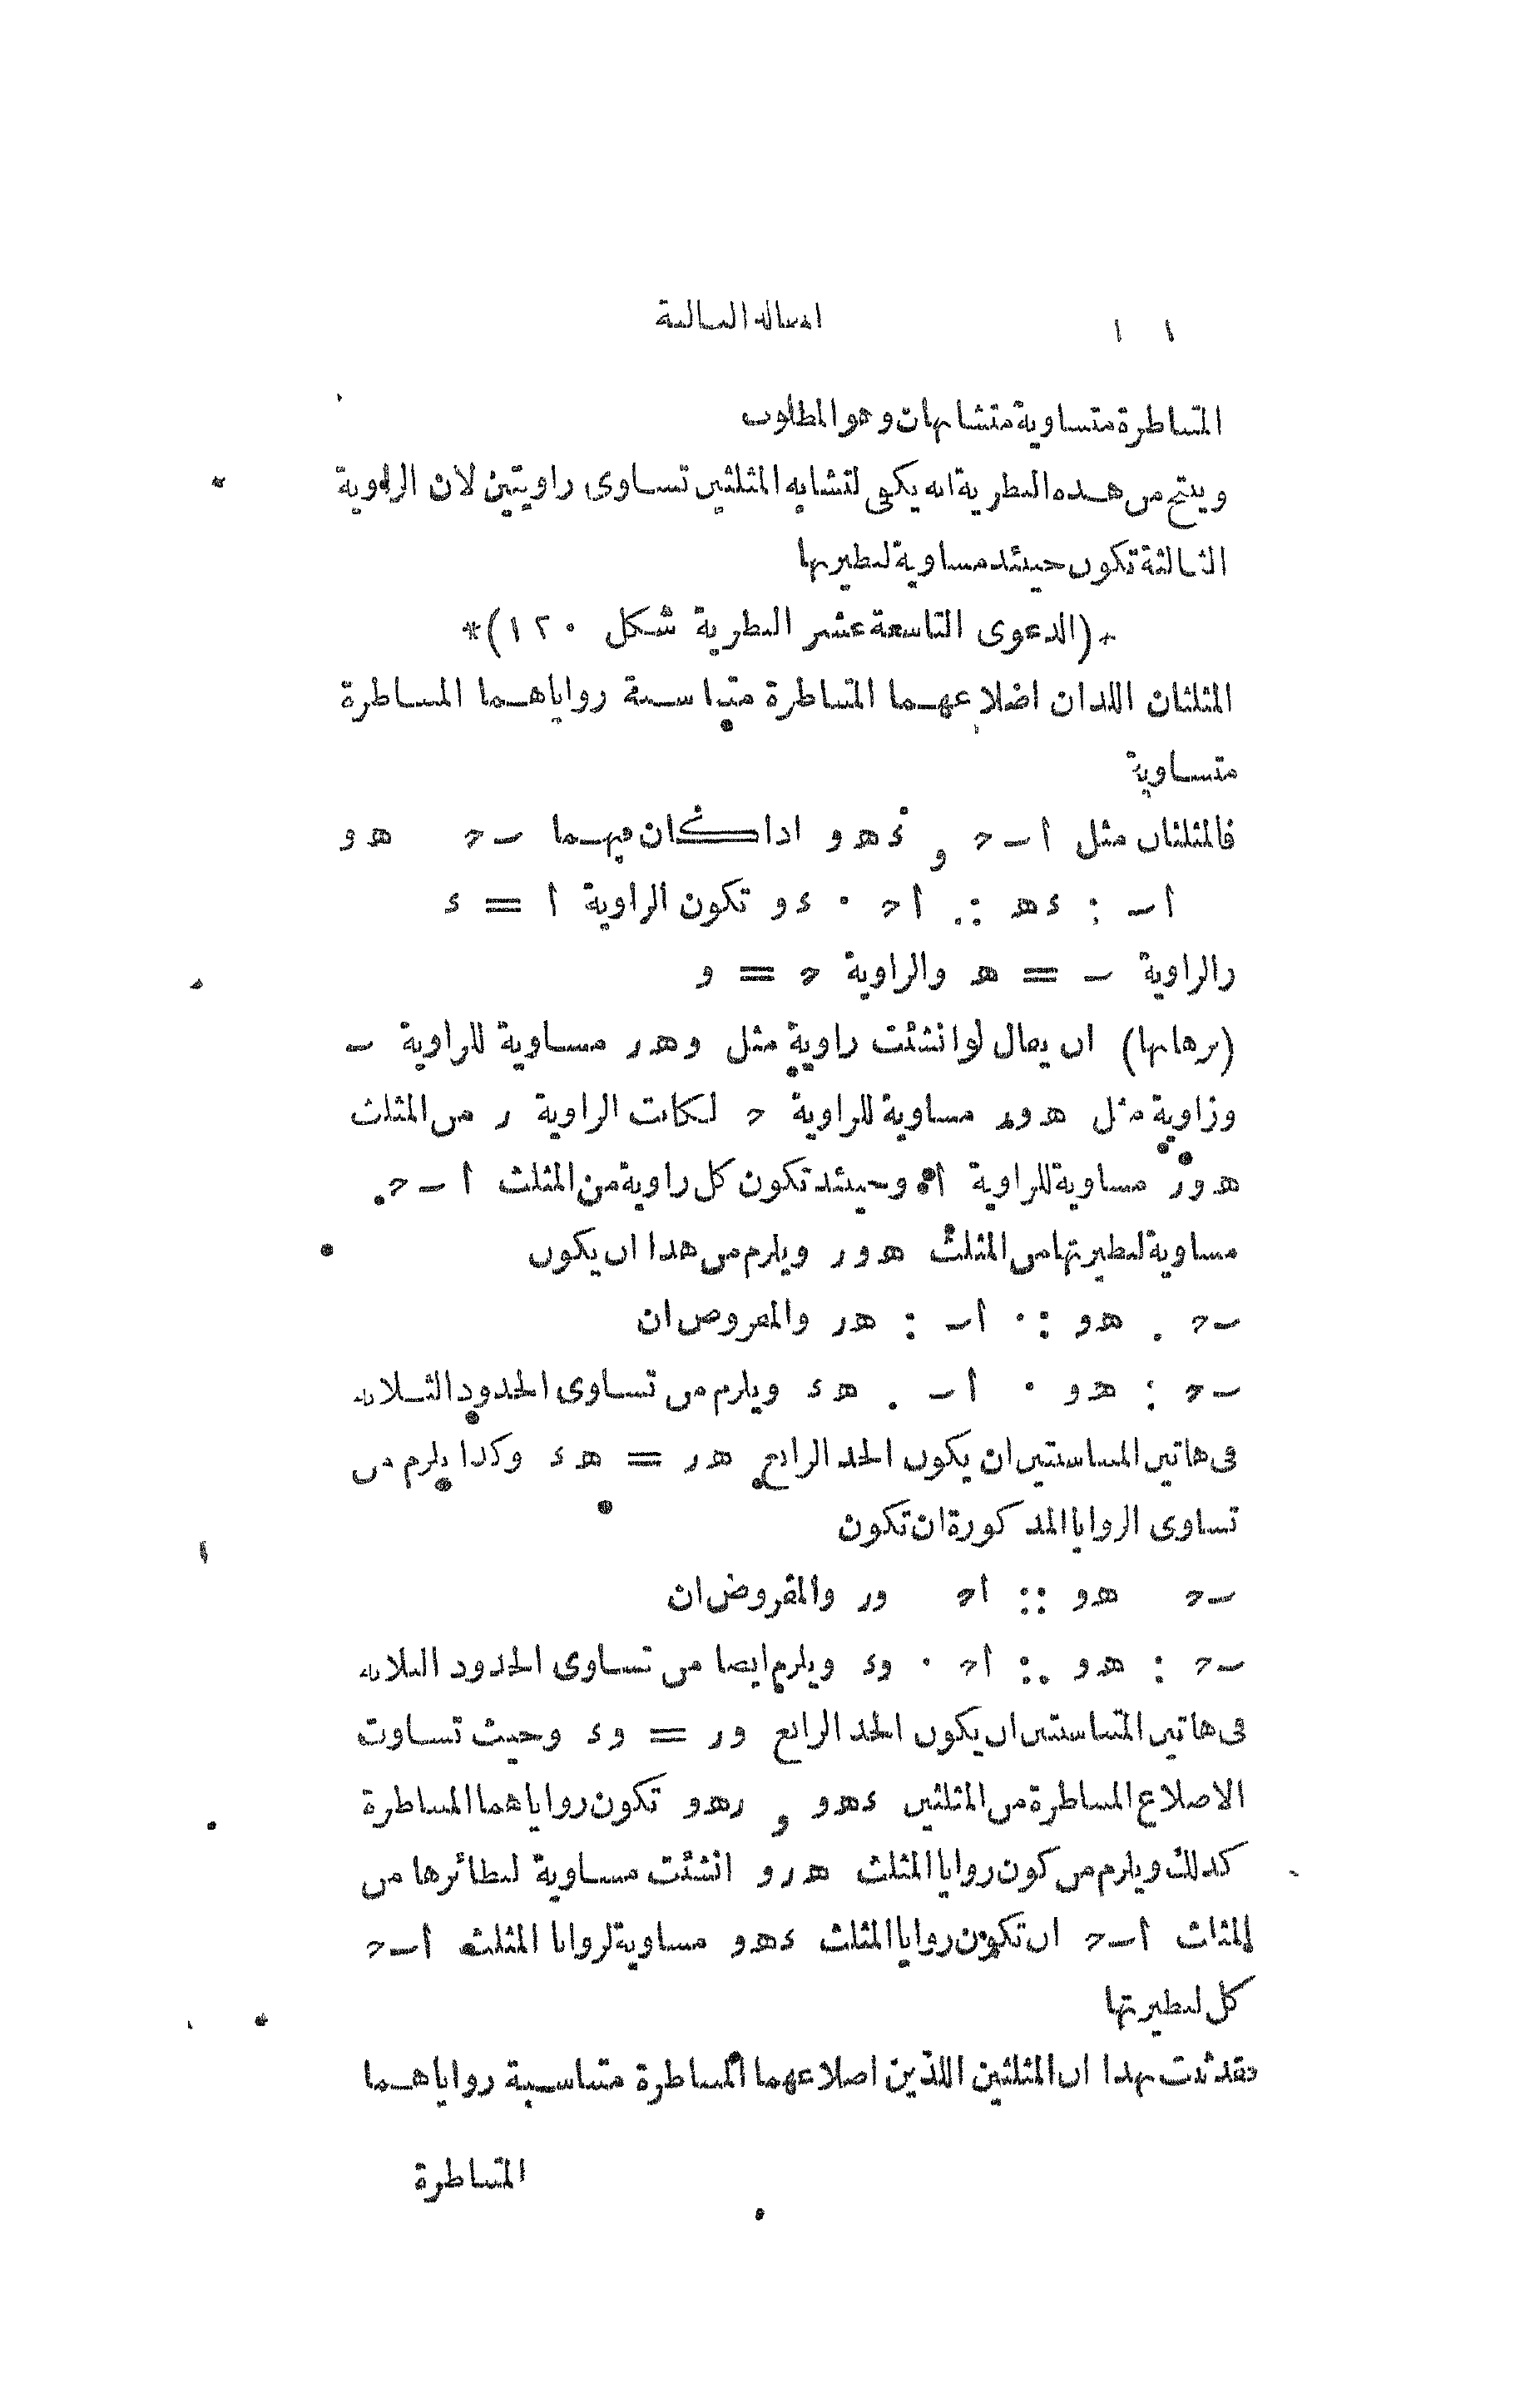 المقالة الثالثة
المتناظرة متساوية متشابهان وهو المطلوب
وينتج من هذه النظرية انه يكفى لتشابه المثلثين تساوى زاويتين لان الزاوية
الثالثة تكون حينئذ مساوية لنظيرها
*(الدعوى التاسعة عشر النظرية شكل ١٢٠)*
المثلثان اللذان اضلاعهما المتناظرة متناسبة زواياهما المتناظرة
متساوية
فالمثلثان مثل أ ب ح و ء ه و اذا كان فيهما ب ح ه و
أ ب : ء ه :: أ ح : ء و تكون الزاوية أ = ء
والزاوية ب = ه والزاوية ح = و
(برهانها) ان يقال لو انشئت زاوية مثل و ه ر مساوية للزاوية ب
وزاوية مثل ه و ر مساوية للزاوية ح لكانت الزاوية ر من المثلث
ه و ر مساوية للزاوية أ وحينئذ تكون كل زاوية من المثلث أ ب ح
مساوية لنظيرتها من المثلث ه و ر ويلزم من هذا ان يكون
ب ح : ه و :: أ ب : ه ر والمفروض ان
ب ح : ه و :: أ ب : ه ء ويلزم من تساوى الحدود الثلاثة
فى هاتين المتناسبتين ان يكون الحد الرابع ه ر = ه ء وكذا يلزم من
تساوى الزوايا المذكورة ان تكون
ب ح ه و :: أ ح و ر والمفروض ان
ب ح : ه و :: أ ح : و ء ويلزم ايضا من تساوى الحدود الثلاثة
فى هاتين المتناسبتين ان يكون الحد الرابع و ر = و ء وحيث تساوت
الاضلاع المتناظرة من المثلثين ء ه و و ر ه و تكون زواياهما المتناظرة
كذلك ويلزم من كون زوايا المثلث ه ر و انشئت مساوية لنظائرها من
المثلث أ ب ح ان تكون زوايا المثلث ء ه و مساوية لزوايا المثلث أ ب ح
كل لنظيرتها
فقد ثبت بهذا ان المثلثين اللذين اضلاعهما المتناظرة متناسبة زواياهما
المتناظرة